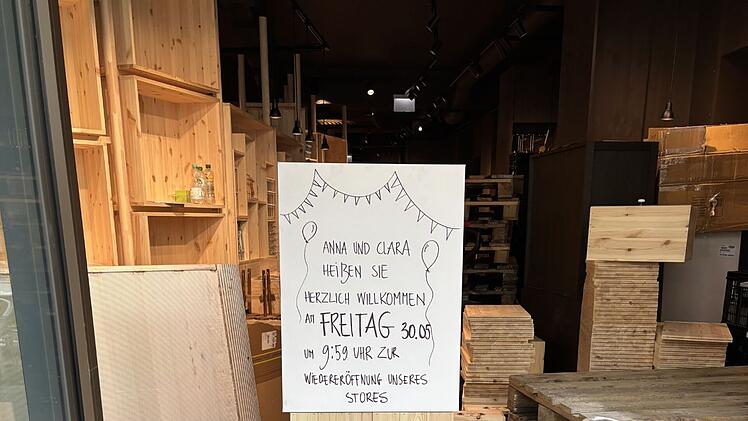 ANNA UND CLARA
HEIßEN SIE
HERZLICH WILLKOMMEN
AM FREITAG 30.05
UM 9:59 UHR ZUR
WIEDERERÖFFNUNG UNSERES
STORES